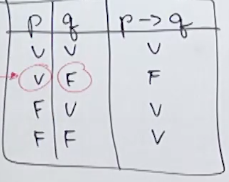 p q p -> q
V V V
V F F
F V V
F F V